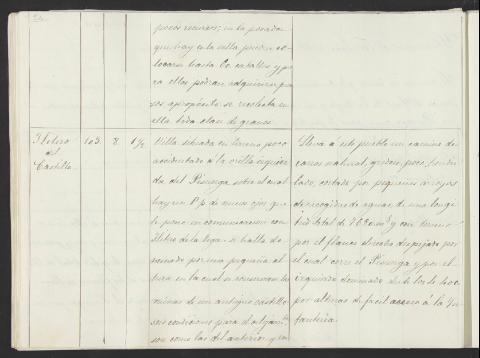 pocos recursos; en la posada
que hay en la villa pueden co-
locarse hasta 60 caballos y pa-
ra ellos podran adquirirse pien-
sos apropósito se recolecta en
ella toda clase de granos
Itero
del
Castillo
103
8
1½
Villa situada en terreno poco
accidentado á la orilla izquier-
da del Pisuerga sobre el cual
hay un P.te de nueve ojos que
le pone en comunicacion con
Itero de la Vega: se halla do-
minado por una pequeña al-
tura en la cual se conservan las
ruinas de un antiguo castillo
sus condiciones para el alojam.to
son como las del anterior y con
Lleva á este pueblo un camino de
carros natural, gredoso, poco
cortado por pequeños arroyos
de recogidas de aguas de una longi-
tud total de y con terreno
por el flanco derecho despejado por
el cual corre el Pisuerga y por el
izquierdo dominado
por alturas de facil acceso á la In-
fanteria.